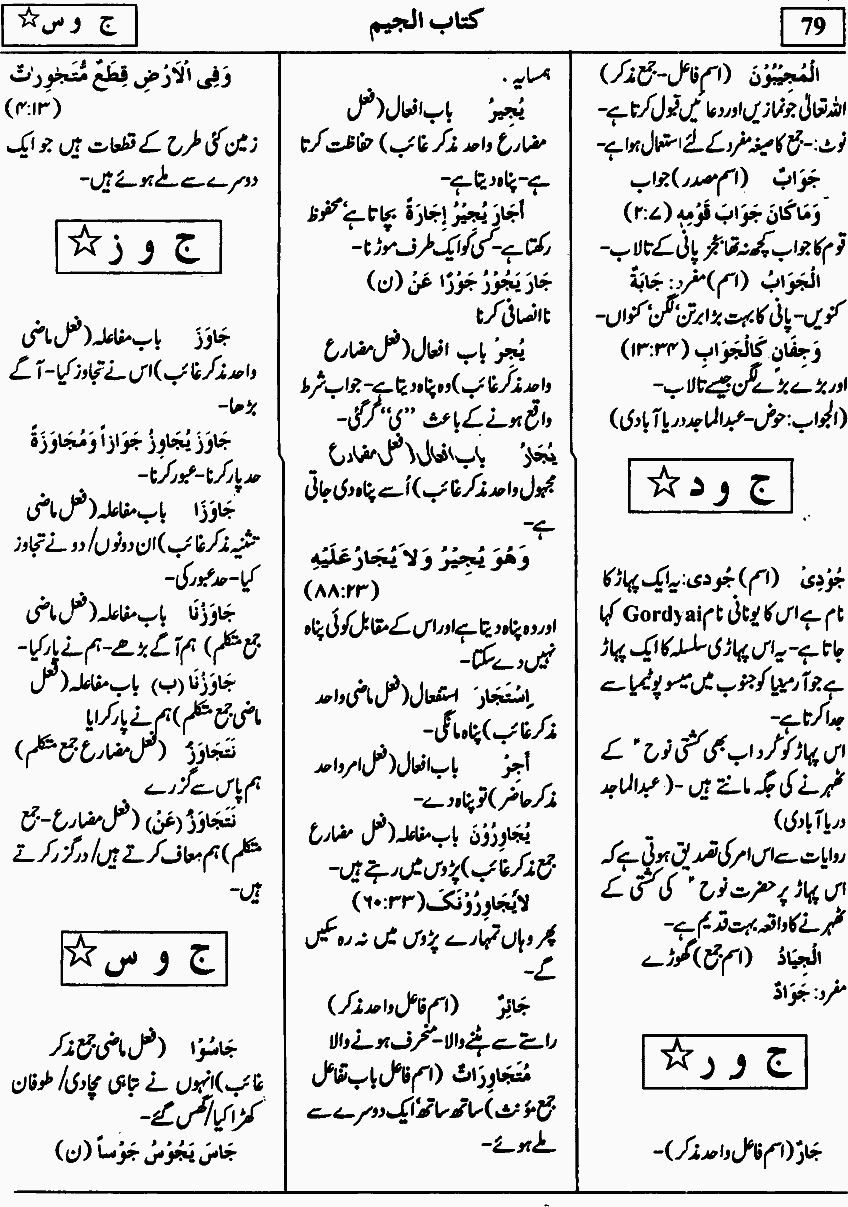 79
کتاب الجیم
ج و س ☆
الْمُجِیْبُوْنَ (اسم فاعل-جمع مذکر)
اللہ تعالیٰ جو نمازیں اور دعائیں قبول کرتا ہے-
نوٹ:-جمع کا صیغہ مفرد کے لئے استعمال ہوا ہے-
جَوَابٌ (اسم مصدر) جواب
وَمَا کَانَ جَوَابَ قَوْمِهٖ (۷:۲)
قوم کا جواب کچھ نہ تھا بجز پانی کے تالاب-
الْجَوَابُ (اسم) مفرد: جَابَةٌ
کنویں-پانی کا بہت بڑا برتن‘ لگن‘ کنواں-
وَجِفَانٍ کَالْجَوَابِ (۱۳:۳۴)
اور بڑے بڑے لگن جیسے تالاب-
(الجواب: حوض-عبدالماجد دریا آبادی)
ج و د ☆
جُوْدِیْ (اسم) جُودی: یہ ایک پہاڑ کا
نام ہے اس کا یونانی نام Gordyai کہا
جاتا ہے- یہ اس پہاڑی سلسلہ کا ایک پہاڑ
ہے جو آرمینیا کو جنوب میں میسوپوٹیمیا سے
جدا کرتا ہے-
اس پہاڑ کو گرد اب بھی کشتی نوحؑ کے
ٹھہرنے کی جگہ مانتے ہیں -(عبدالماجد
دریا آبادی)
روایات سے اس امر کی تصدیق ہوتی ہے کہ
اس پہاڑ پر حضرت نوحؑ کی کشتی کے
ٹھہرنے کا واقعہ بہت قدیم ہے-
الْجِیَادُ (اسم جمع) گھوڑے
مفرد: جَوَادٌ
ج و ر ☆
جَارٌ (اسم فاعل واحد مذکر)-
ہمسایہ.
یُجِیرُ باب افعال (فعل
مضارع واحد مذکر غائب) حفاظت کرتا
ہے-پناہ دیتا ہے-
أَجَارَ یُجِیْرُ إِجَارَةً بچاتا ہے‘ محفوظ
رکھتا ہے-کسی کو ایک طرف موڑنا-
جَارَ یَجُوْرُ جَوْرًا عَنْ (ن)
نا انصافی کرنا
یُجِرْ باب افعال (فعل مضارع
واحد مذکر غائب) وہ پناہ دیتا ہے-جواب شرط
واقع ہونے کے باعث ”ی“ گر گئی-
یُجَارُ باب افعال (فعل مضارع
مجہول واحد مذکر غائب) اُسے پناہ دی جاتی
ہے-
وَهُوَ یُجِیْرُ وَلَا یُجَارُ عَلَیْهِ
(۸۸:۲۳)
اور وہ پناہ دیتا ہے اور اس کے مقابل کوئی پناہ
نہیں دے سکتا-
اِسْتَجَارَ استفعال (فعل ماضی واحد
مذکر غائب) پناہ مانگی-
أَجِرْ باب افعال (فعل امر واحد
مذکر حاضر) تو پناہ دے-
یُجَاوِرُوْنَ باب مفاعلہ (فعل مضارع
جمع مذکر غائب) پڑوس میں رہتے ہیں-
لَا یُجَاوِرُوْنَکَ (۶۰:۳۳)
پھر وہاں تمہارے پڑوس میں نہ رہ سکیں
گے-
جَائِرٌ (اسم فاعل واحد مذکر)
راستے سے ہٹنے والا-منحرف ہونے والا
مُتَجَاوِرَاتٌ (اسم فاعل باب تفاعل
جمع مؤنث) ساتھ ساتھ‘ ایک دوسرے سے
ملے ہوئے-
وَفِی الْاَرْضِ قِطَعٌ مُّتَجٰوِرٰتٌ
(۴:۱۳)
زمین کئی طرح کے قطعات ہیں جو ایک
دوسرے سے ملے ہوئے ہیں-
ج و ز ☆
جَاوَزَ باب مفاعلہ (فعل ماضی
واحد مذکر غائب) اس نے تجاوز کیا-آگے
بڑھا-
جَاوَزَ یُجَاوِزُ جَوَازاً وَمُجَاوَزَةً
حد پار کرنا-عبور کرنا-
جَاوَزَا باب مفاعلہ (فعل ماضی
تثنیہ مذکر غائب) ان دونوں/دو نے تجاوز
کیا-حد عبور کی-
جَاوَزْنَا باب مفاعلہ (فعل ماضی
جمع متکلم) ہم آگے بڑھے-ہم نے پار کیا-
جَاوَزْنَا (ب) باب مفاعلہ (فعل
ماضی جمع متکلم) ہم نے پار کرایا
نَتَجَاوَزُ (فعل مضارع جمع متکلم)
ہم پاس سے گزرے
نَتَجَاوَزُ (عَنْ) (فعل مضارع-جمع
متکلم) ہم معاف کرتے ہیں/درگزر کرتے
ہیں-
ج و س ☆
جَاسُوْا (فعل ماضی جمع مذکر
غائب) انہوں نے تباہی مچا دی/طوفان
کھڑا کیا/گھس گئے-
جَاسَ یَجُوْسُ جَوْساً (ن)